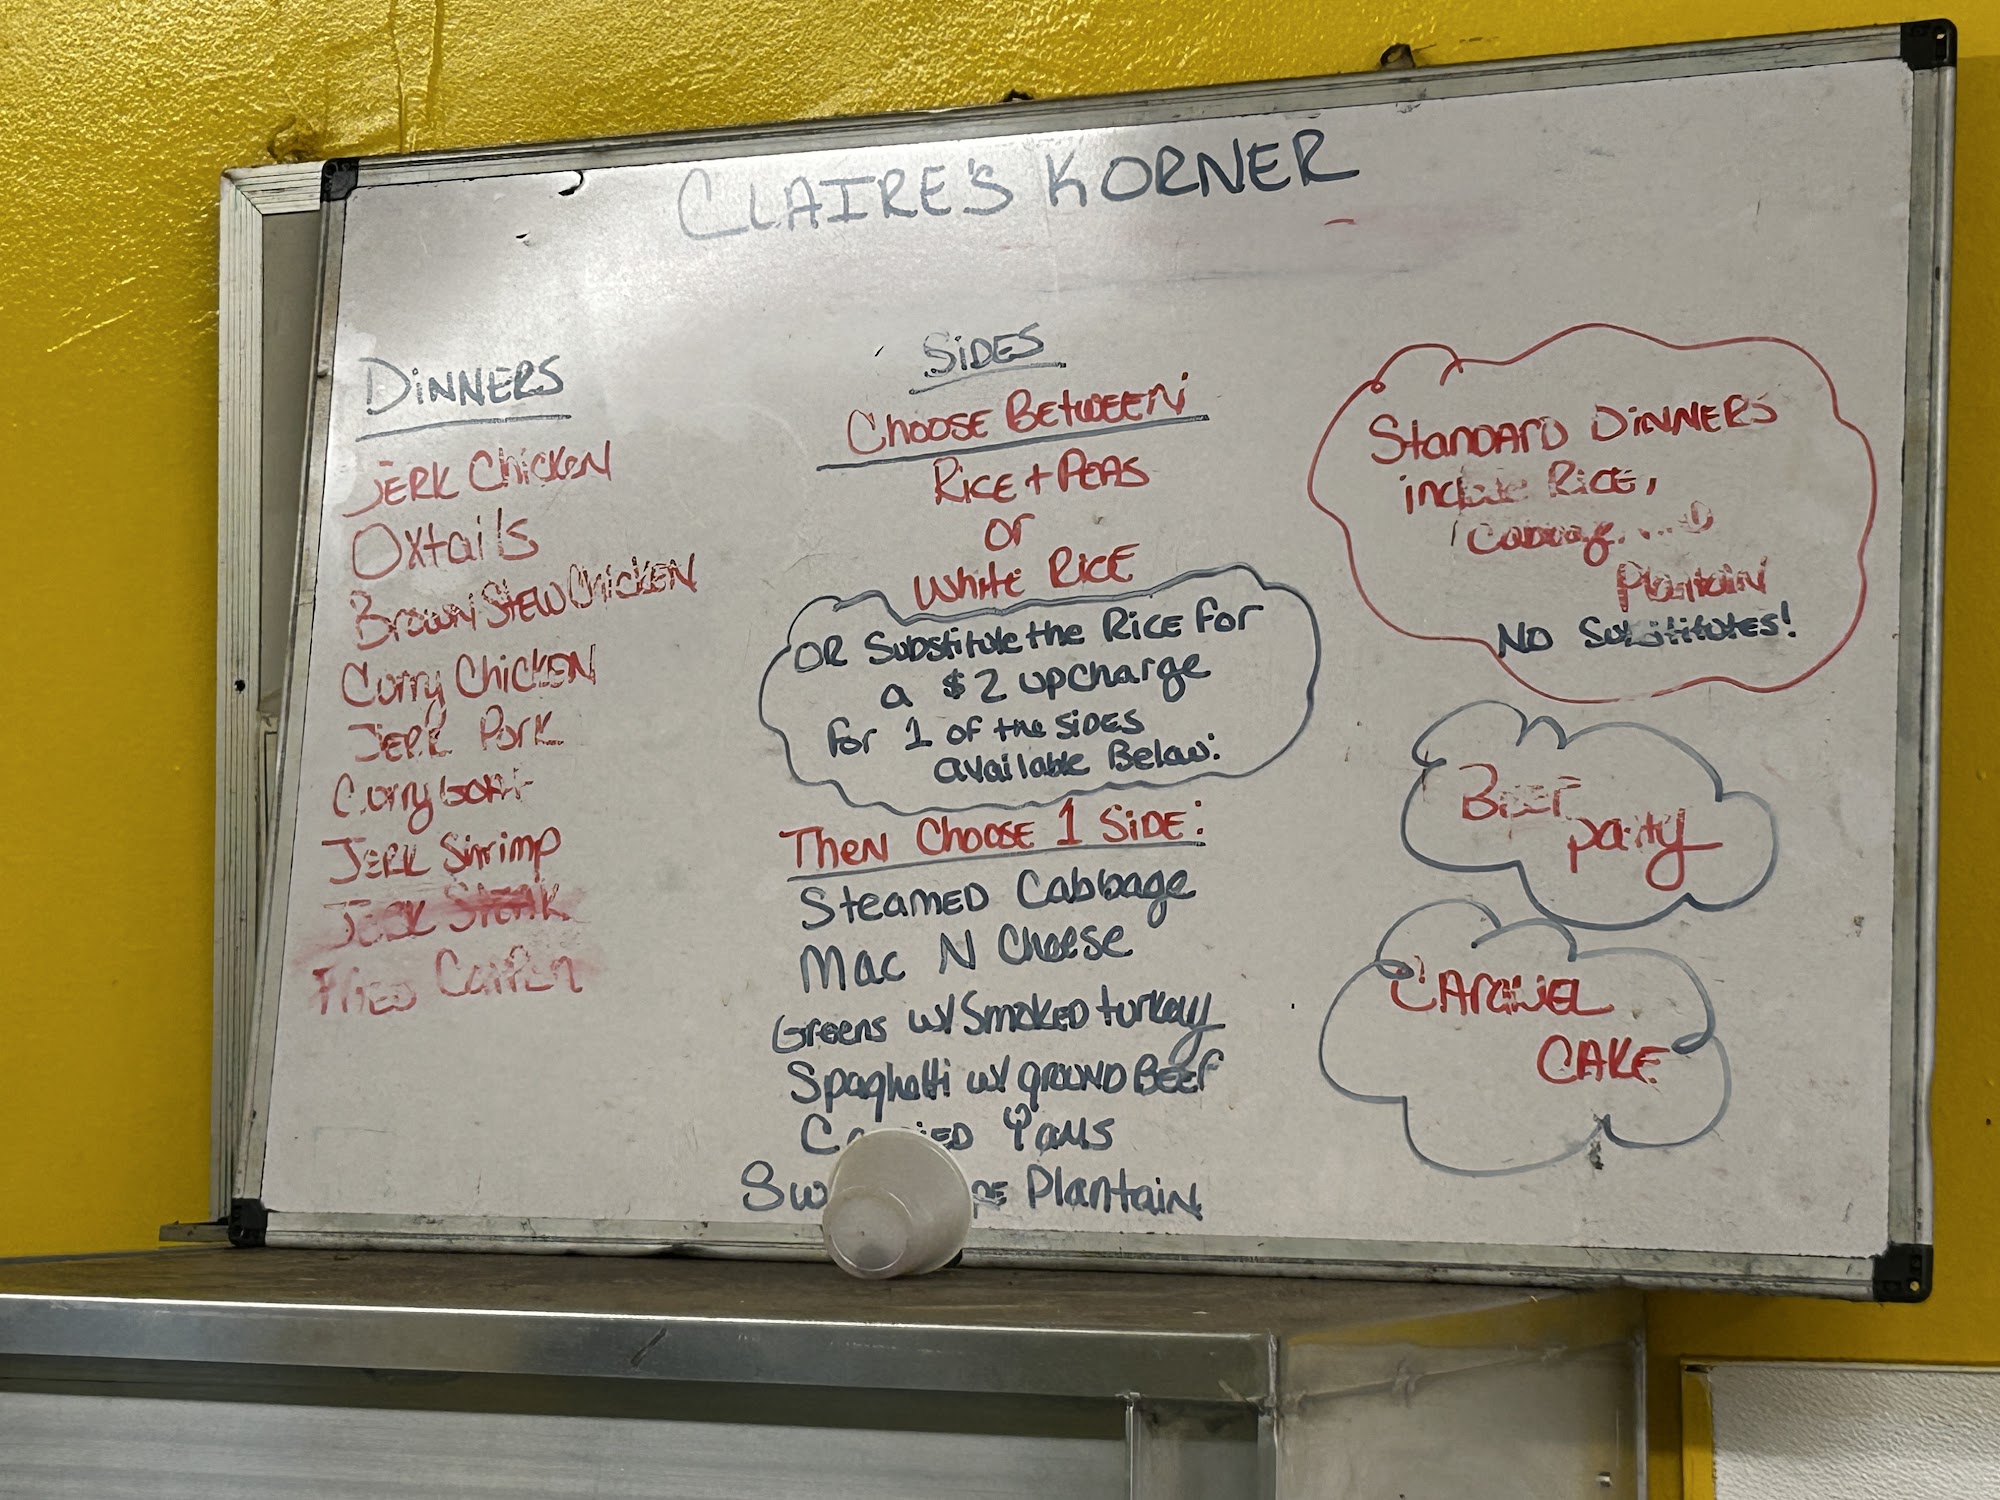 CLAIRE'S KORNER
DINNERS
JERK Chicken
Oxtails
Brown Stew Chicken
Curry Chicken
JERK PORK
Curry Goat
JERK Shrimp
JERK STEAK
FRIED
SIDES
CHOOSE BETWEEN
RICE + PEAS
or
WHITE RICE
OR Substitute the RICE For
a $2 upcharge
for 1 of the SIDES
available Below:
THEN CHOOSE 1 SIDE:
STEAMED Cabbage
MAC N Cheese
Greens w/ Smoked turkey
Spaghetti w/ GROUND BEEF
YAMS
Plantain
STANDARD DINNERS
include RICE,
Plantain
NO Substitutes!
BEEF
patty
CARAMEL
CAKE